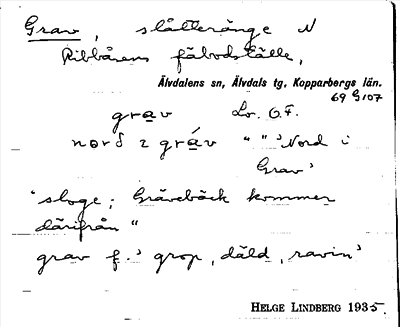 Grav, slåtteränge N
Ribbåsens fäbodställe,
Älvdalens sn, Älvdals tg, Kopparbergs län.
69 G107
grav Lv. O.F.
nord ı gráv " " 'Nord i
Grav'
"sloge; Grävebäck kommer
därifrån"
grav f. 'grop, däld, ravin'
HELGE LINDBERG 1935.